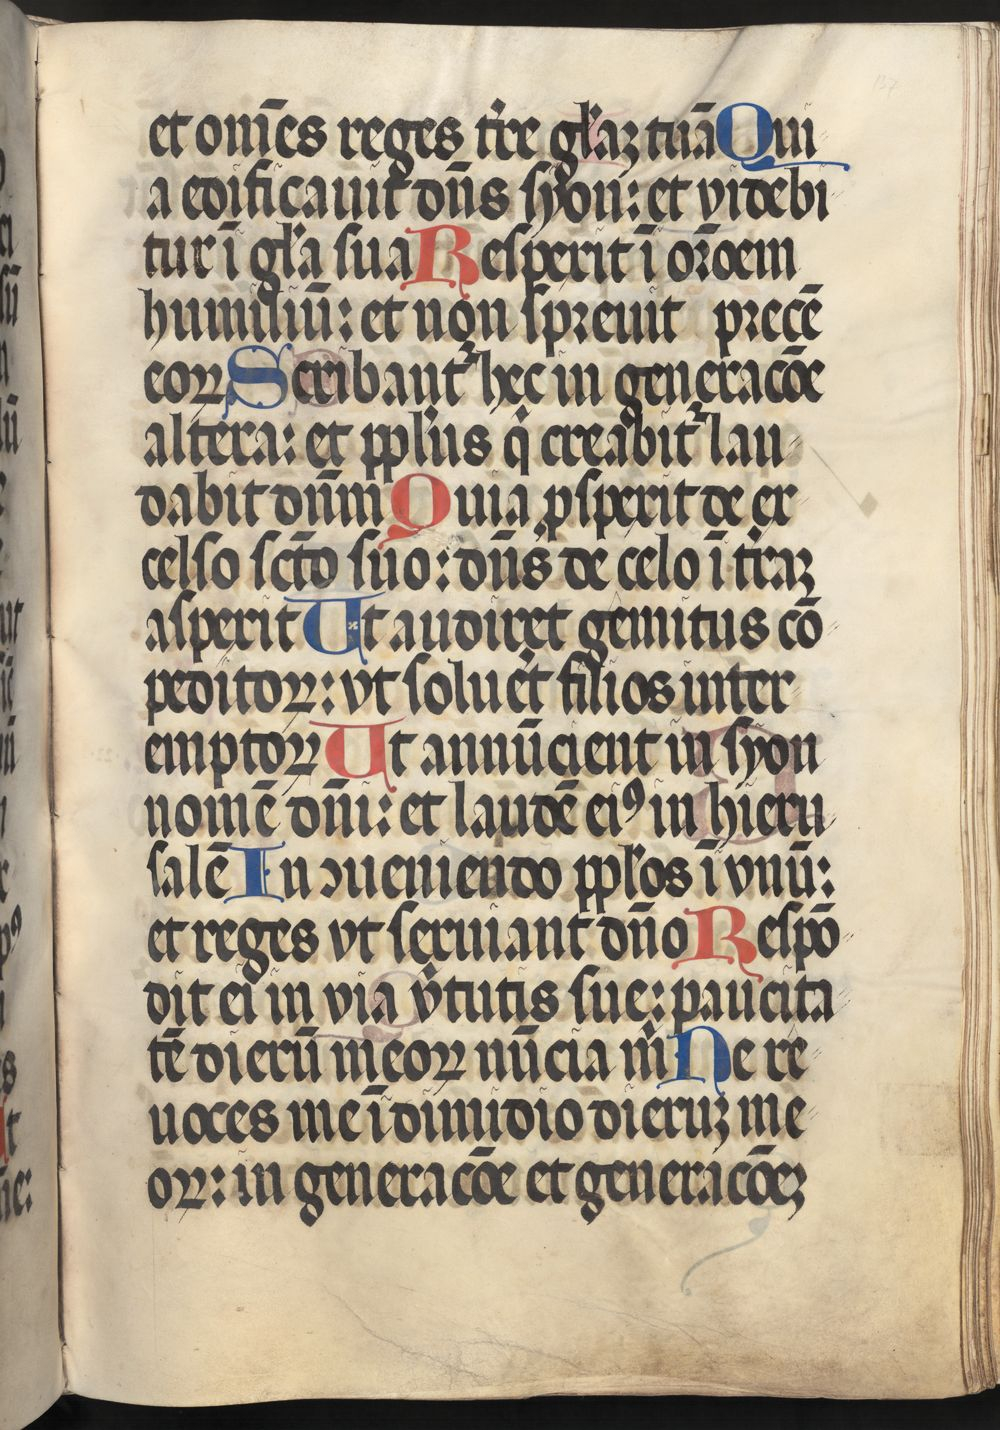 et om̄es reges tr̄re gl̄aꝫ tuā Qui
a edificauit dn̄s syon: et videbi
tur ī gl̄a sua Resperit ī or̄oem
humiliū: et non spreuit precē
eoꝝ Scribant᷑ hec in generacōe
altera: et ppl̄us q̇ creabit᷑ lau
dabit dn̄m Quia ꝓsperit de ex
celso sct̄o suo: dn̄s de celo ī tr̄aꝫ
asperit Ut audiret gemitus cō
peditoꝝ: vt soluēt filios inter
emptoꝝ Ut annūcient in syon
nomē dn̄i: et laudē eiꝰ in hieru
salē In ↄueniendo ppl̄os ī vnū:
et reges vt seruiant dn̄o Respō
dit ei in via v̄tutis sue: paucita
tē dierū meoꝝ nūcia m̄ Ne re
uoces me ī dimidio dieruꝫ me
oꝝ: in generacōe et generacōeꝫ